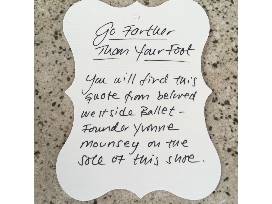 Go Farther
Than Your Foot
You will find this
quote from beloved
westside Ballet-
Founder Yvonne
Mounsey on the
sole of this shoe.